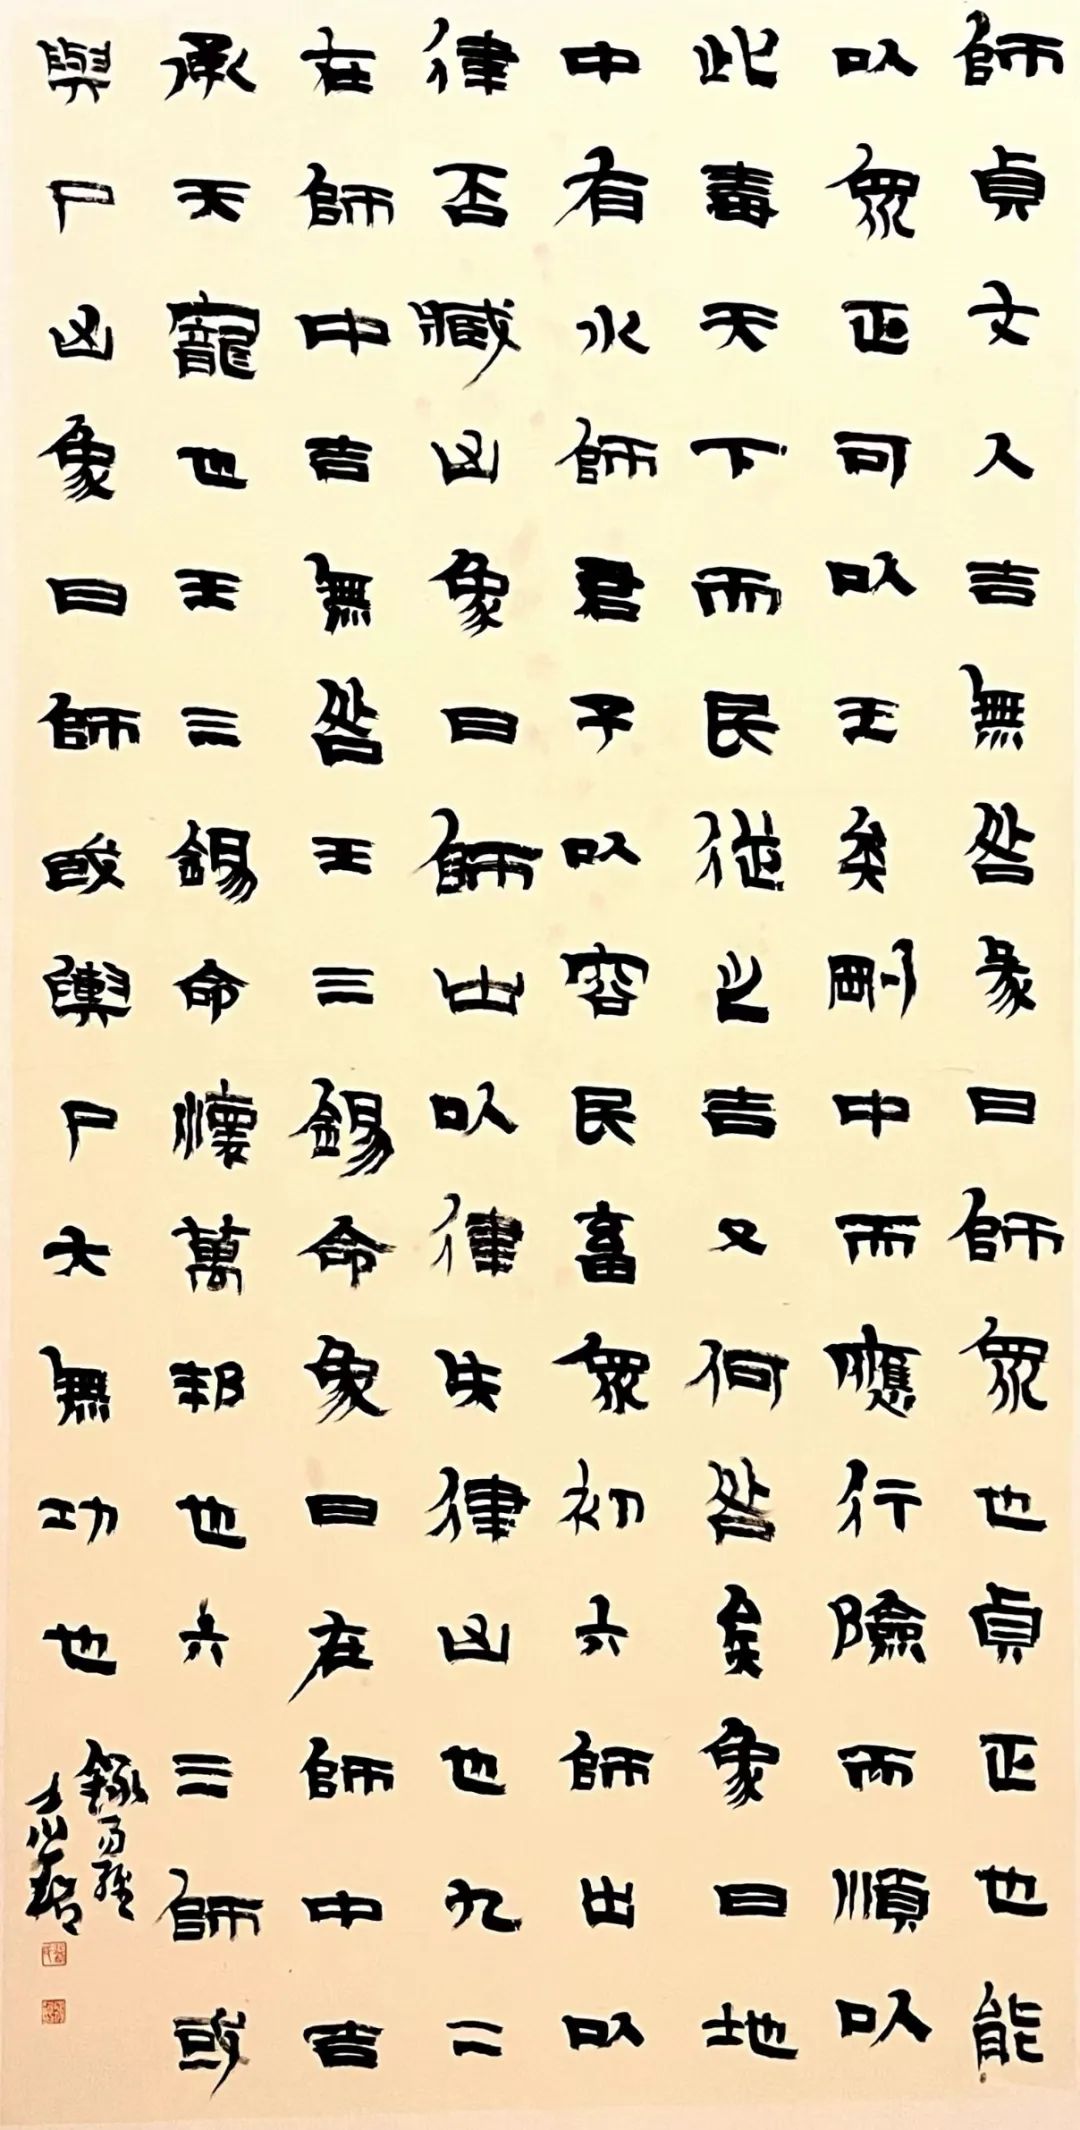 師貞丈人吉無咎彖曰師眾也貞正也能
以眾正可以王矣剛中而應行險而順以
此毒天下而民從之吉又何咎矣象曰地
中有水師君子以容民畜眾初六師出以
律否臧凶象曰師出以律失律凶也九二
在師中吉無咎王三錫命象曰在師中吉
承天寵也王三錫命懷萬邦也六三師或
輿尸凶象曰師或輿尸大無功也
錄易經